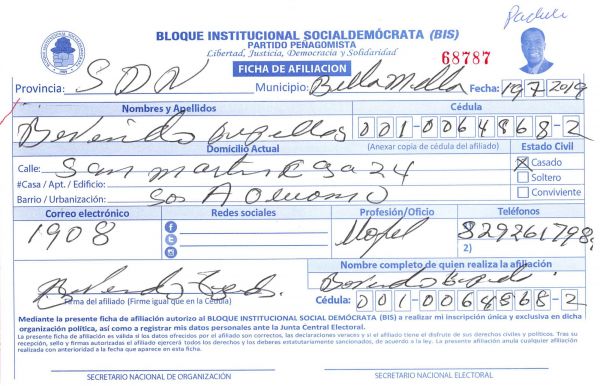 BLOQUE INSTITUCIONAL SOCIALDEMÓCRATA (BIS)
PARTIDO PEÑAGOMISTA
Libertad, Justicia, Democracia y Solidaridad
68787
FICHA DE AFILIACION
Provincia: SDN Municipio: Fecha: 19 7 2019
Nombres y Apellidos Cédula
001-0064868-2
Domicilio Actual (Anexar copia de cédula del afiliado) Estado Civil
Calle: San martin Casa 24
X Casado
#Casa / Apt. / Edificio:
Soltero
Barrio / Urbanización: Los
Conviviente
Correo electrónico Redes sociales Profesión/Oficio Teléfonos
1908
829261798
2)
Nombre completo de quien realiza la afiliación
Firma del afiliado (Firme igual que en la Cédula)
Cédula: 001-0064868-2
Mediante la presente ficha de afiliación autorizo al BLOQUE INSTITUCIONAL SOCIAL DEMÓCRATA (BIS) a realizar mi inscripción única y exclusiva en dicha
organización política, así como a registrar mis datos personales ante la Junta Central Electoral.
La presente ficha de afiliación es válida si los datos ofrecidos por el afiliado son correctos, las declaraciones veraces y si el afiliado tiene el disfrute de sus derechos civiles y políticos. Tras su
recepción, sello y firmas autorizadas el afiliado ejercerá todos los derechos y los deberes estatutariamente sancionados, de acuerdo a la ley. La presente afiliación anula cualquier afiliación
realizada con anterioridad a la fecha que aparece en esta ficha.
SECRETARIO NACIONAL DE ORGANIZACIÓN SECRETARIO NACIONAL ELECTORAL